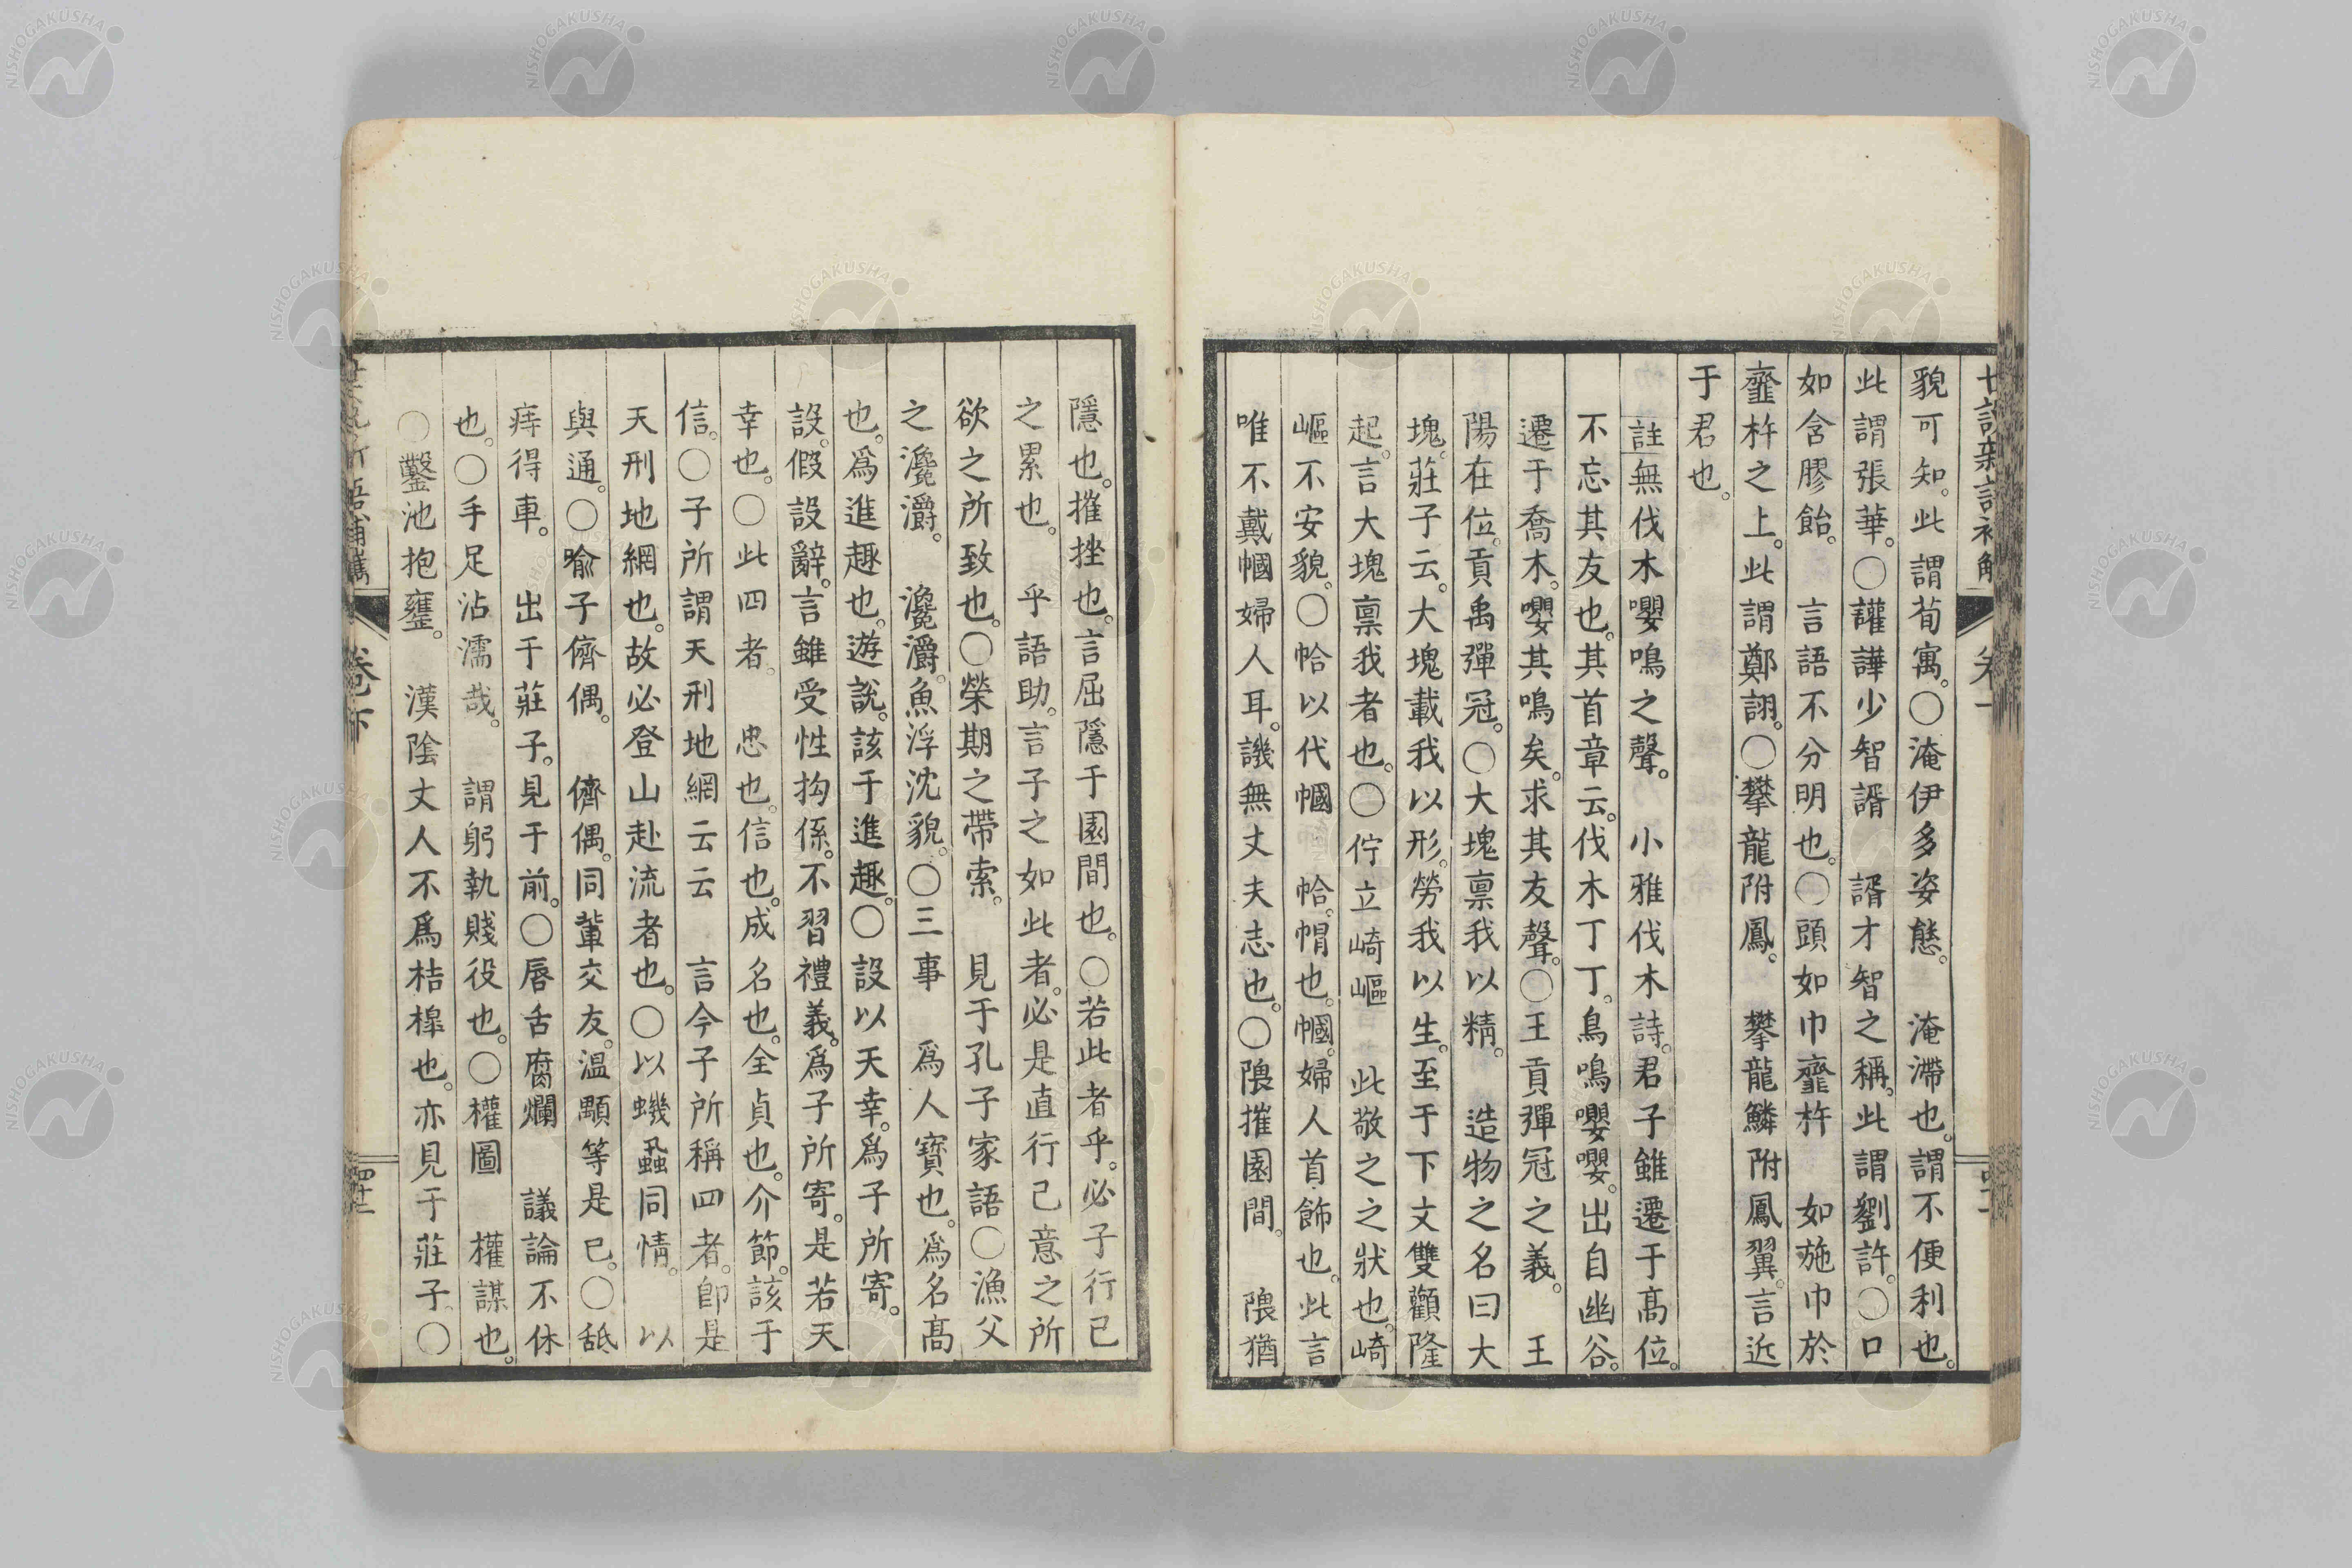 貌可知。此謂荀寓。○淹伊多姿態。　淹滯也。謂不便利也。
此謂張華。○讙譁少智諝　諝才智之稱。此謂劉許。○口
如含膠飴。　言語不分明也。○頭如巾韲杵　如施巾於
韲杵之上。此謂鄭詡。○攀龍附鳳。　攀龍鱗附鳳翼。言近
于君也。
註無伐木嚶鳴之聲。　小雅伐木詩。君子雖遷于高位。
不忘其友也。其首章云。伐木丁丁。鳥鳴嚶嚶。出自幽谷。
遷于喬木。嚶其鳴矣。求其友聲。○王貢彈冠之義。　王
陽在位。貢禹彈冠。○大塊禀我以精。　造物之名曰大
塊。莊子云。大塊載我以形。勞我以生。至于下文雙觀隆
起。言大塊禀我者也。○佇立崎嶇　此敬之之狀也。崎
嶇不安貌。○帢以代幗　帢。帽也。幗。婦人首飾也。此言
唯不戴幗婦人耳。譏無丈夫志也。○隈摧園間。　隈猶
隱也。摧挫也。言屈隱于園間也。○若此者乎。必子行己
之累也。　乎語助。言子之如此者。必是直行己意之所
欲之所致也。○榮期之帶索。　見于孔子家語○漁父
之瀺灂。　瀺灂。魚浮沈貌。○三事　爲人寶也。爲名高
也。爲進趣也。遊說。該于進趣。○設以天幸。爲子所寄。
設。假設辭。言雖受性拘係。不習禮義。爲子所寄。是若天
幸也。○此四者。　忠也。信也。成名也。全貞也。介節。該于
信。○子所謂天刑地網云云　言今子所稱四者。卽是
天刑地網也。故必登山赴流者也。○以蟣蝨同情。　以
與通。○喻子儕偶。　儕偶。同輩交友。溫顒等是已。○舐
痔得車。　出于莊子。見于前。○唇舌腐爛　議論不休
也。○手足沾濡哉。　謂躬執賤役也。○權圖　權謀也。
○鑿池抱甕。　漢陰丈人不爲桔槹也。亦見于莊子。○
卷下